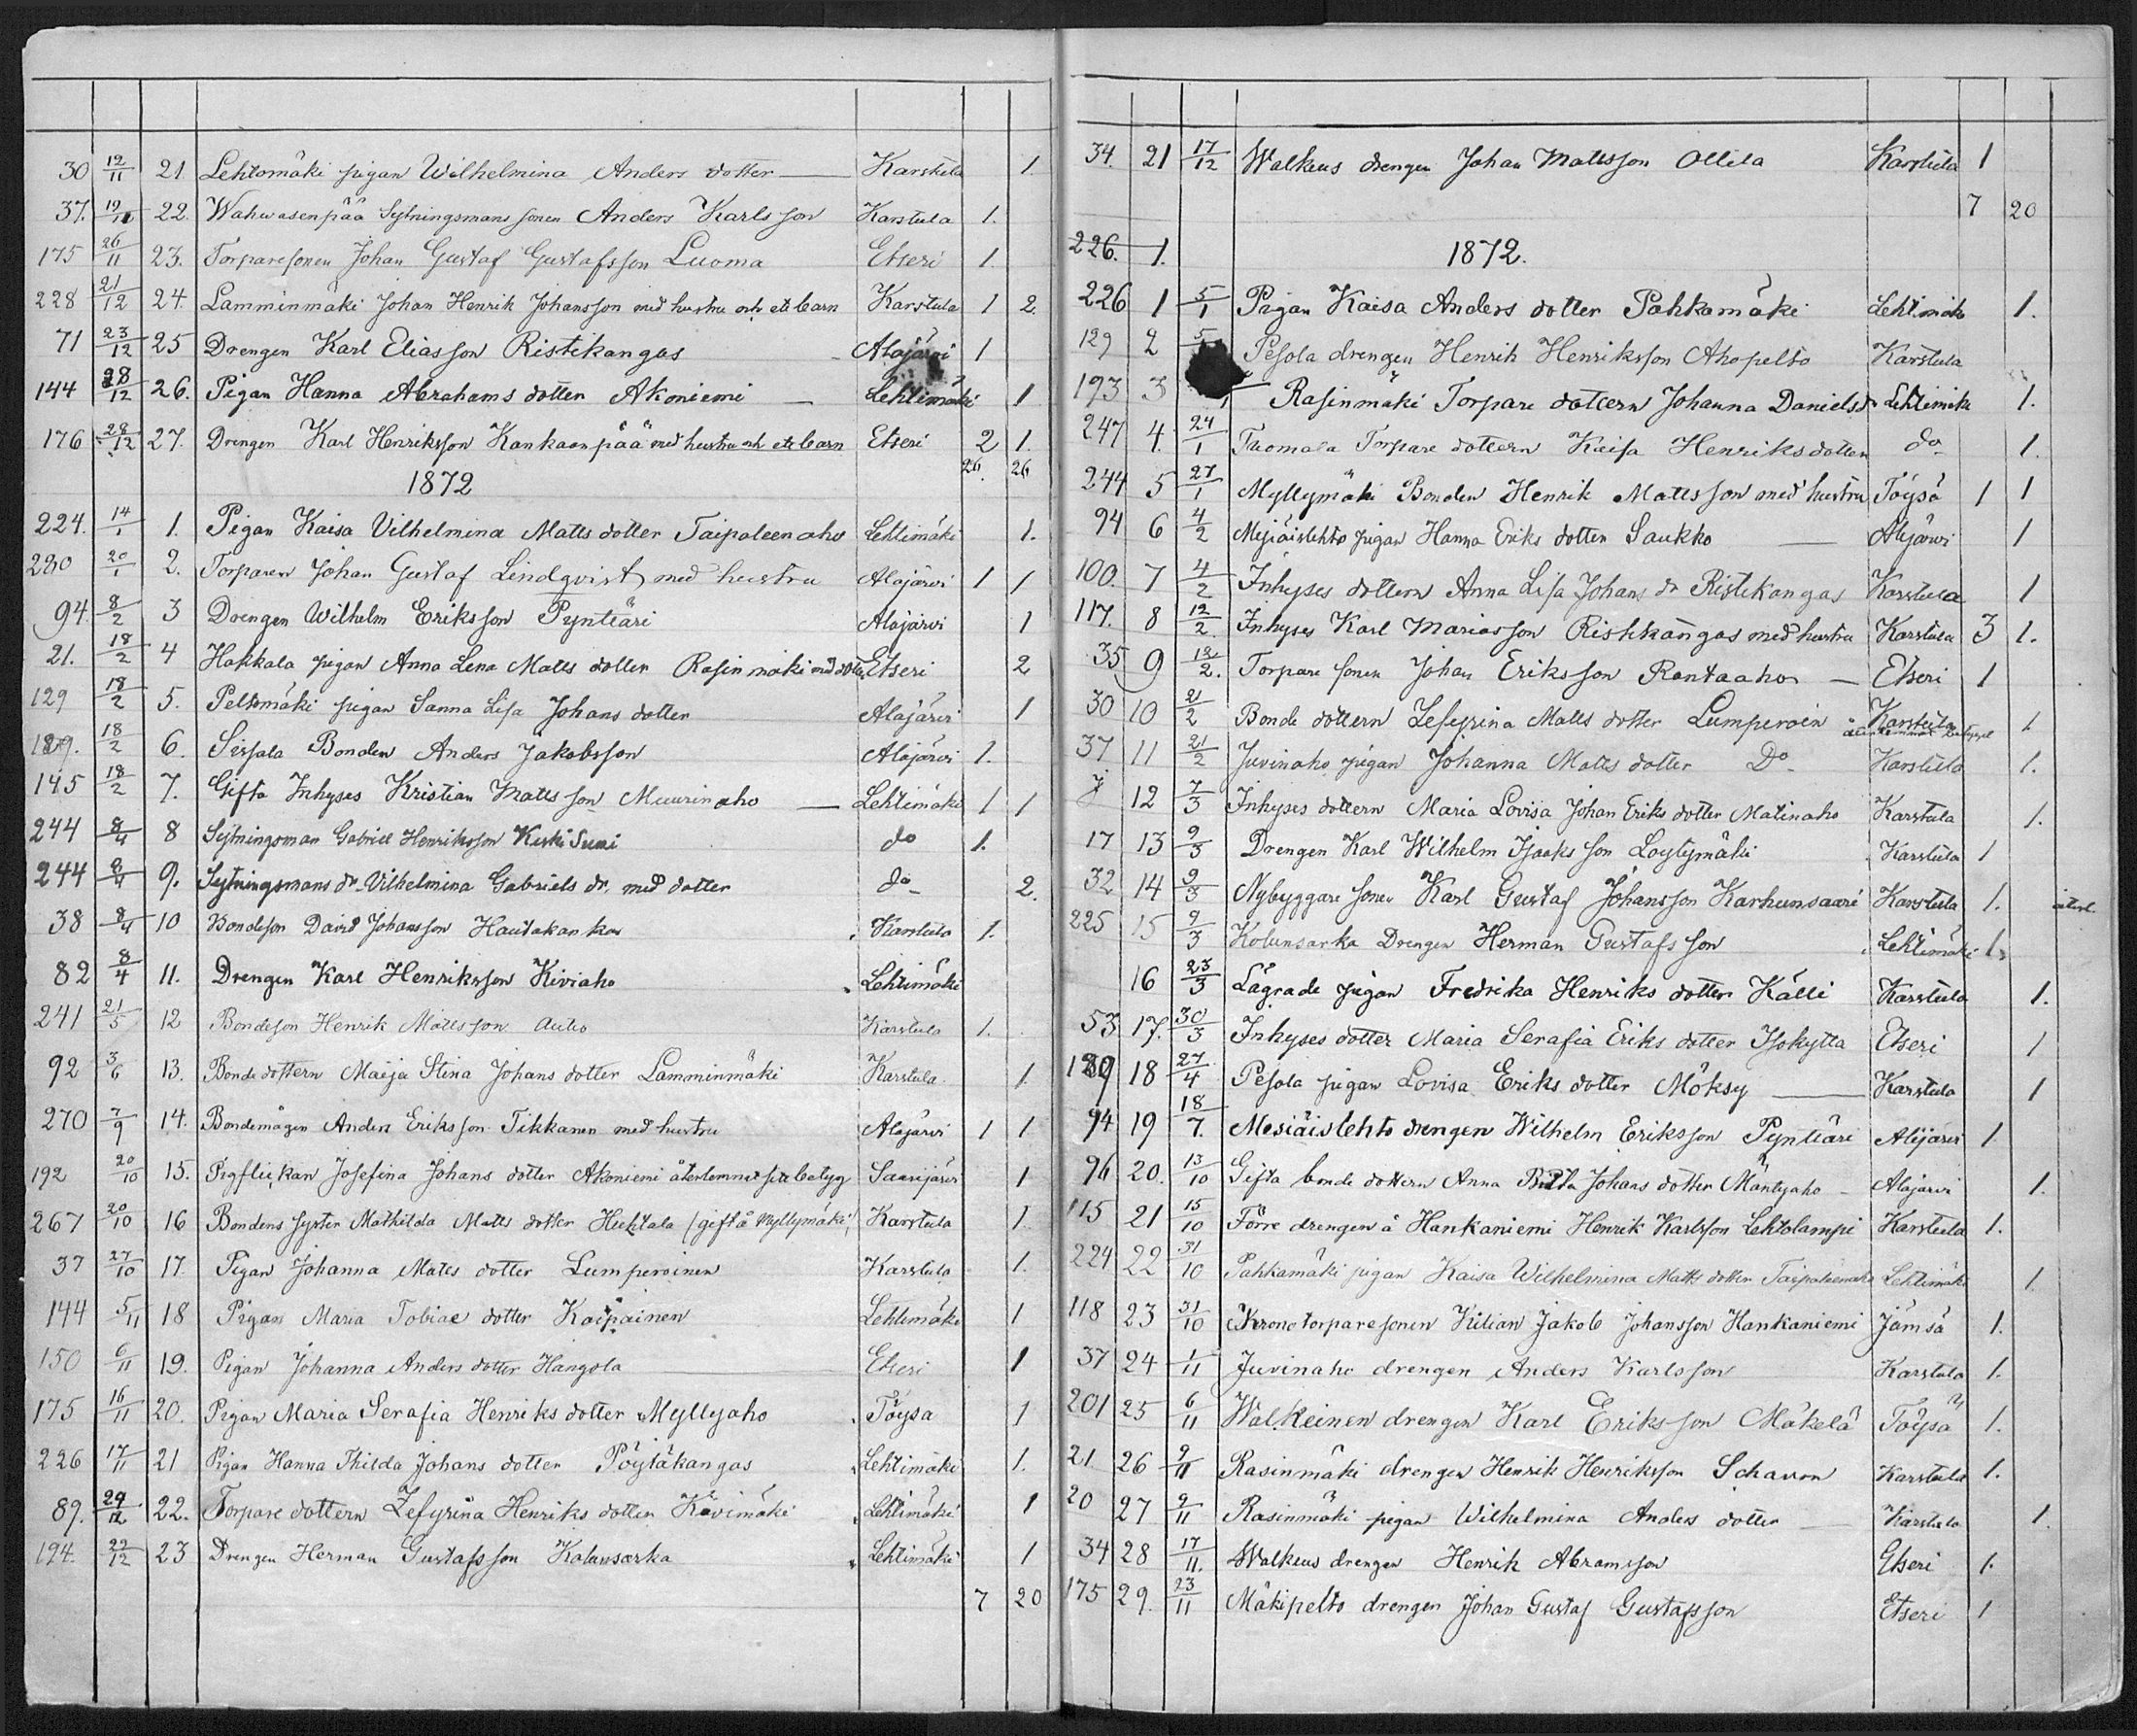 30 12/11 21. Lehtomäki pigan Wilhelmina Anders dotter — Karstula 1.
37. 19/10 22. Wahwasenpää Sytningsmans sonen Anders Karlsson Karstula 1.
175 26/11 23. Torparesonen Johan Gustaf Gustafsson Luoma Etseri 1.
228 21/12 24. Lamminmäki Johan Henrik Johansson med hustru och ett barn Karstula 1 2.
71 23/12 25 Drengen Karl Eliasson Ristikangas Alajärvi 1
144 28/12 26. Pigan Hanna Abrahams dotter Akoniemi — Lehtimäki 1
176 28/12 27. Drengen Karl Henriksson Kankaanpää med hustru och ett barn Etseri 2 1.
26. 26
1872
224. 14/1 1. Pigan Kaisa Vilhelmina Matts dotter Taipaleenaho Lehtimäki 1.
230 20/1 2. Torparen Johan Gustaf Lindqvist med hustru Alajärvi 1 1
94. 8/2 3 Drengen Wilhelm Eriksson Pyntäri Alajärvi 1
21. 18/2 4 Hakkala pigan Anna Lena Matts dotter Rasinmäki med dotter Etseri 2
129 18/2 5. Peltomäki pigan Sanna Lisa Johans dotter Alajärvi 1
189. 18/2 6. Sissala Bonden Anders Jakobsson Alajärvi 1.
145 18/2 7. Gifta Inhyses Kristian Mattsson Muurinaho — Lehtimäki 1 1
244 8/4 8 Sytningsman Gabriel Henriksson Keski Sumi do 1.
244 8/4 9. Sytningsmans dr Vilhelmina Gabriels dr. med dotter do 2.
38 8/4 10 Bondeson David Johansson Hautakankas Karstula 1.
82 8/4 11. Drengen Karl Henriksson Kiviaho Lehtimäki
241 21/5 12 Bondeson Henrik Mattsson Autio Karstula 1.
92 3/6 13. Bonde dottern Maija Stina Johans dotter Lamminmäki Karstula. 1
270 7/9 14. Bondemågen Anders Eriksson Tikkanen med hustru Alajärvi 1 1
192 20/10 15. Pigflickan Josefina Johans dotter Akoniemi återlemnat sitt betyg Saarijärvi 1
267 20/10 16 Bondens syster Mathilda Matts dotter Huhtala (gift å Myllymäki) Karstula 1.
37 27/10 17. Pigan Johanna Matts dotter Lumperoinen Karstula 1.
144 5/11 18 Pigan Maria Tobiae dotter Kaipainen Lehtimäki 1
150 6/11 19. Pigan Johanna Anders dotter Hangola Etseri 1
175 16/11 20. Pigan Maria Serafia Henriks dotter Myllyaho Töysä 1
226 17/11 21 Pigan Hanna Thilda Johans dotter Pöytäkangas Lehtimäki 1.
89. 29/12 22. Torpare dottern Zefyrina Henriks dotter Kivimäki Lehtimäki 1
194. 29/12 23 Drengen Herman Gustafsson Kolunsarka Lehtimäki 1
7 20
34. 21 17/12 Walkeus drengen Johan Mattsson Ollila Karstula 1
7 20
226. 1.
1872.
226 1 5/1 Pigan Kaisa Anders dotter Pahkamäki Lehtimäki 1.
129 2 5/ Pesola drengen Henrik Henriksson Ahopelto Karstula
193 3 /1 Rasinmäki Torpare dottern Johanna Danielsdr Lehtimäki 1.
247 4. 24/1 Tuomala Torpare dottern Kaisa Henriksdotter do 1.
244 5 27/1 Myllymäki Bonden Henrik Mattsson med hustru Töysä 1 1
94 6 4/2 Mesiäislehto pigan Hanna Eriks dotter Saukko — Alajärvi 1
100. 7 4/2 Inhyses dottern Anna Lisa Johans dr Ristikangas Karstula 1
117. 8 12/2. Inhyses Karl Mariasson Ristikangas med hustru Karstula 3 1.
35 9 18/2. Torpare sonen Johan Eriksson Rantaaho — Etseri 1
30 10 21/2 Bonde dottern Zefyrina Matts dotter Lumperoin Karstula 1
37 11 21/2 Juvinaho pigan Johanna Matts dotter Do Karstula 1.
12 7/3 Inhyses dottern Maria Lovisa Johan Eriks dotter Matinaho Karstula 1.
17 13 9/3 Drengen Karl Wilhelm Isaksson Löytymäki Karstula 1
32 14 9/3 Nybyggare sonen Karl Gustaf Johansson Karhunsaari Karstula 1.
225 15 9/3 Kolunsarka Drengen Herman Gustafsson Lehtimäki 1.
16 23/3 Lägrade pigan Fredrika Henriks dotter Källi Karstula 1.
53 17. 30/3 Inhyses dotter Maria Serafia Eriks dotter Isokytta Etseri 1
129 18 27/4 Pesola pigan Lovisa Eriks dotter Möksy — Karstula 1
94 19 18/7. Mesiäislehto drengen Wilhelm Eriksson Pyntäri Alajärvi 1
96 20. 13/10 Gifta bonde dottern Anna Britta Johans dotter Mäntyaho — Alajärvi 1.
115 21 15/10 Förre drengen å Hankaniemi Henrik Karlsson Lehtolampi Karstula 1.
224 22 31/10 Pahkamäki pigan Kaisa Wilhelmina Matts dotter Taipaleenaho Lehtimäki 1.
118 23 31/10 Kronotorparesonen Kilian Jakob Johansson Hankaniemi Jämsä 1.
37 24 1/11 Juvinaho drengen Anders Karlsson Karstula 1.
201 25 6/11 Walkeinen drengen Karl Eriksson Mäkelä Töysä 1.
21. 26 9/11 Rasinmäki drengen Henrik Henriksson Schavon Karstula 1.
20 27 9/11 Rasinmäki pigan Wilhelmina Anders dotter — Karstula 1.
34 28 17/11. Walkeus drengen Henrik Abramsson Etseri 1.
175 29. 23/11 Mäkipelto drengen Johan Gustaf Gustafsson Etseri 1